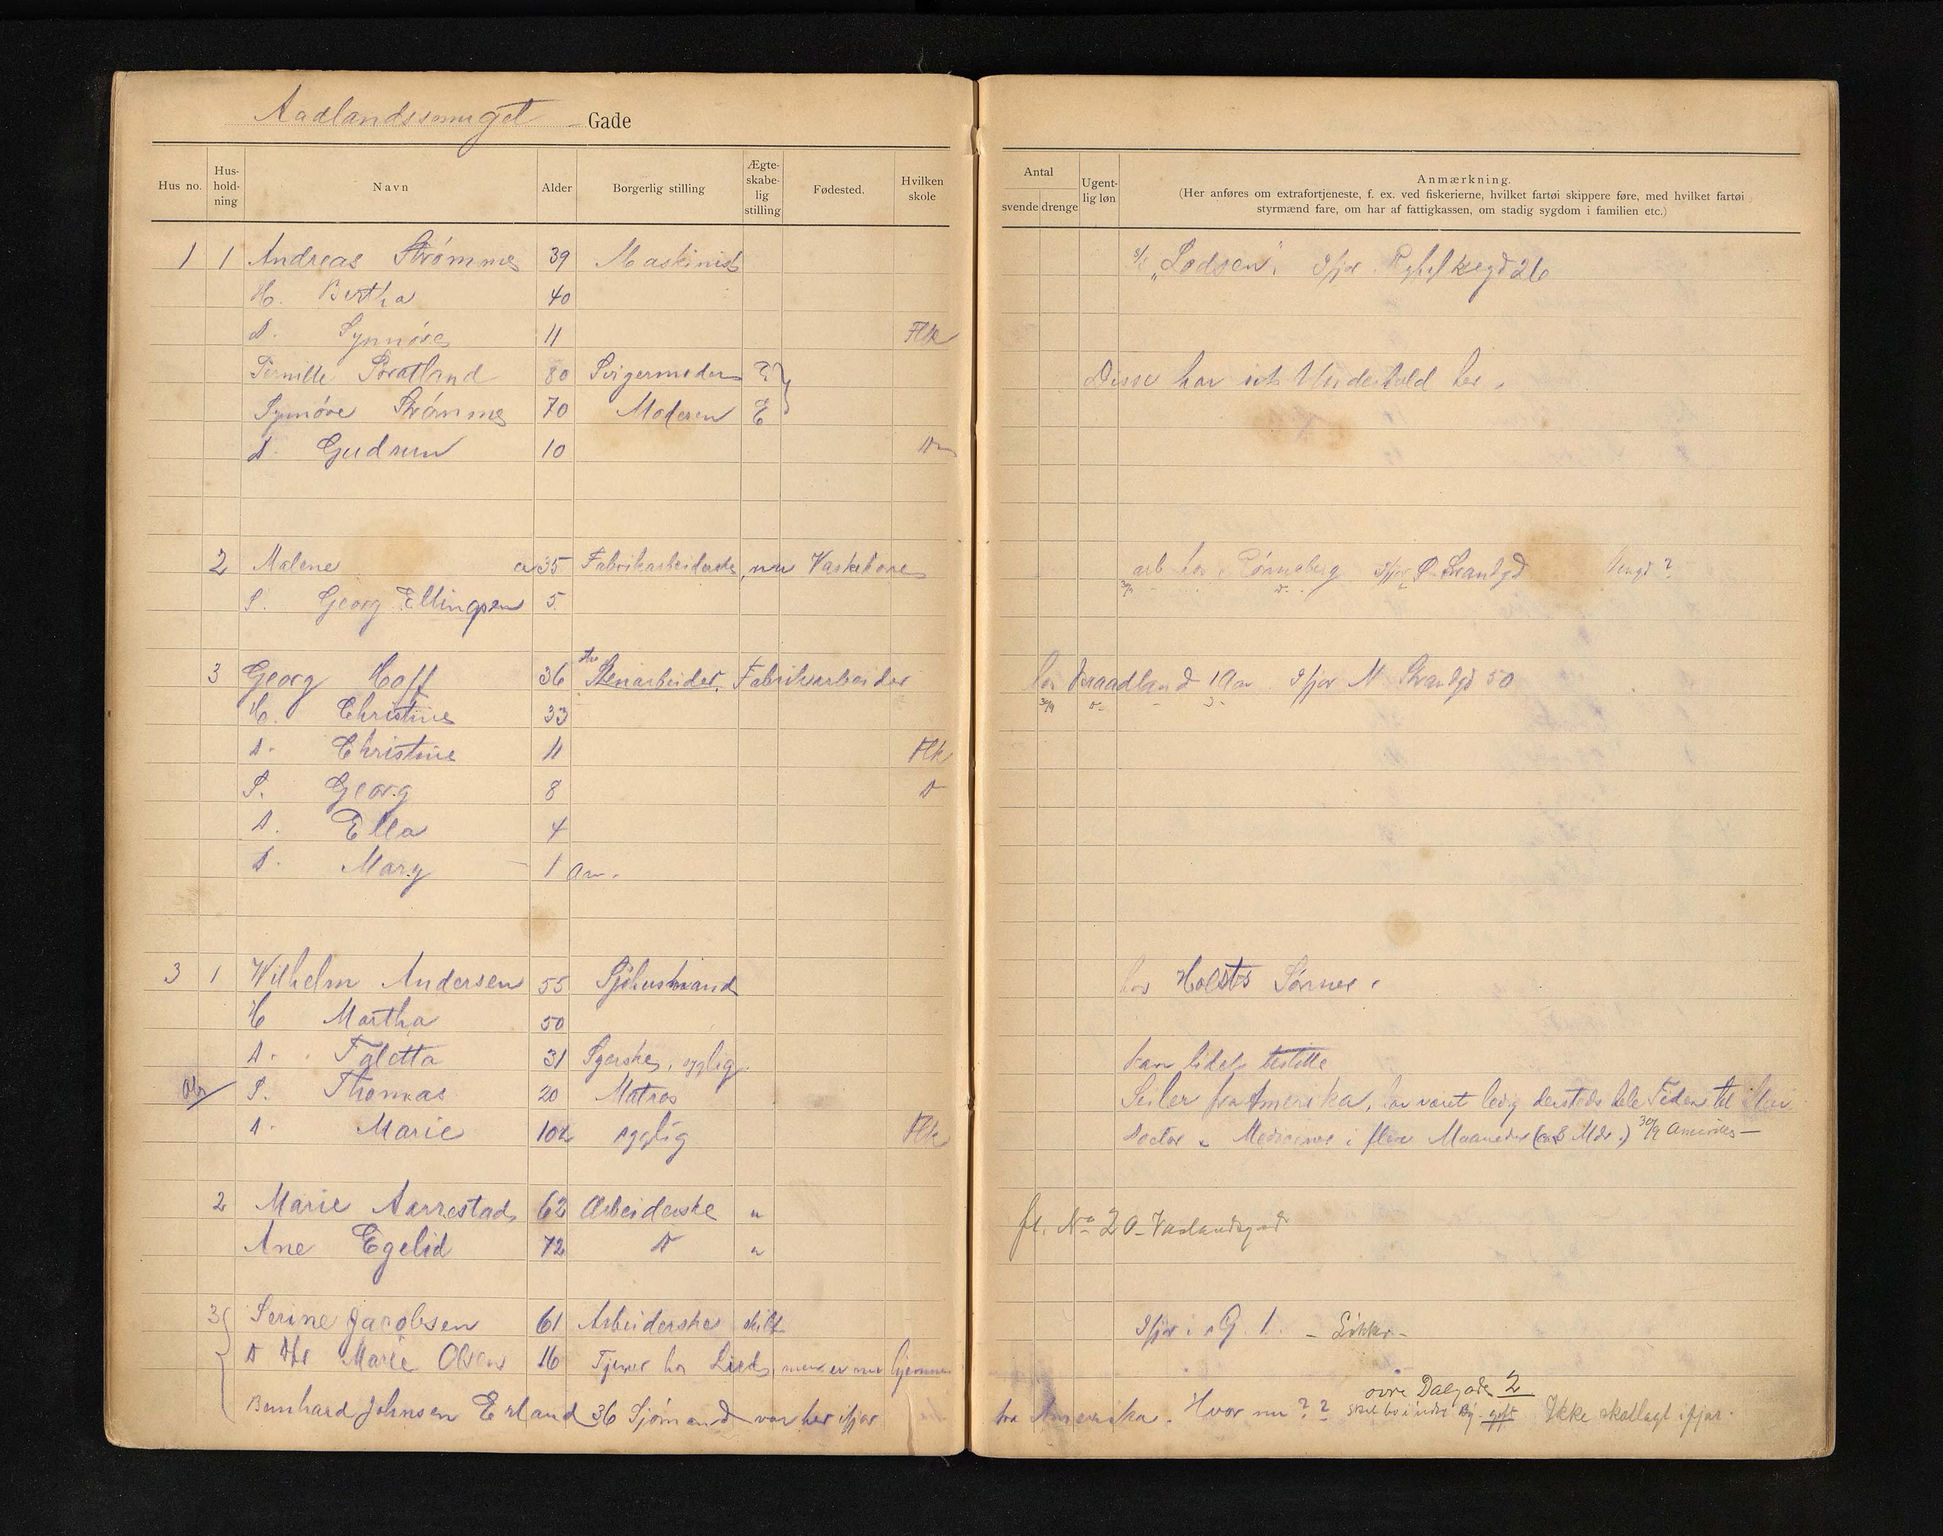 Aadlandssmuget Gade
Hus no. Hus-hold-ning Navn Alder Borgerlig stilling Ægte-skabe-lig stilling Fødested. Hvilken skole
Antal svende drenge Ugent-lig løn Anmærkning.
(Her anføres om extrafortjeneste, f. ex. ved fiskerierne, hvilket fartøi skippere føre, med hvilket fartøi
styrmænd fare, om har af fattigkassen, om stadig sygdom i familien etc.)
1 1 Andreas Strømmes 39 Maskinist „Lodsen". Ifjor 26
H. Bertha 40
D. Synnøve 11 Flk
Pernille 80 Svigermoder E Disse har sit Underhold her.
Synnøve Strømmes 70 Moderen E
D. Gudrun 10 Do
2 Malene 35 Fabrikarbeiderske, nu Vaskekone arb. hos Ifjor Ø. Strandgd ?
S. Georg Ellingsen 5
3 Georg Hoff 36 Stenarbeider, Fabrikarbeider hos Braadland 1 Aar Ifjor N Strandgd 50
H. Christine 33 30/9
D. Christine 11 Flk
S. Georg 8 D
D. Ella 4
D. Marg 1 Aar.
3 1 Wilhelm Andersen 55 Sjøhusmand hos Holsts Sønner.
H Martha 50
D. Taletta 31 Syerske, syglig. kan lidet bestille
S. Thomas 20 Matros Seiler fra Amerika, har været
D. Marie 10 syglig Flk Doctor Medeciner i flere Maaneder 30/9 Amerika
2 Marie Aarrestad 62 Arbeiderske " fl. No 20 Vaalandsgad
Ane Egelid 72 D "
3 Serine Jacobsen 61 Arbeiderske skilt Ifjor i G. 1. -
D Marie Olsen 16 Tjener hos men er nu hjemme
Bernhard Johnsen Erland 36 Sjømand var her ifjor fra Amerika. Hvor nu ? ? øvre Dalgade 2 gift Ikke skatlagt ifjor.